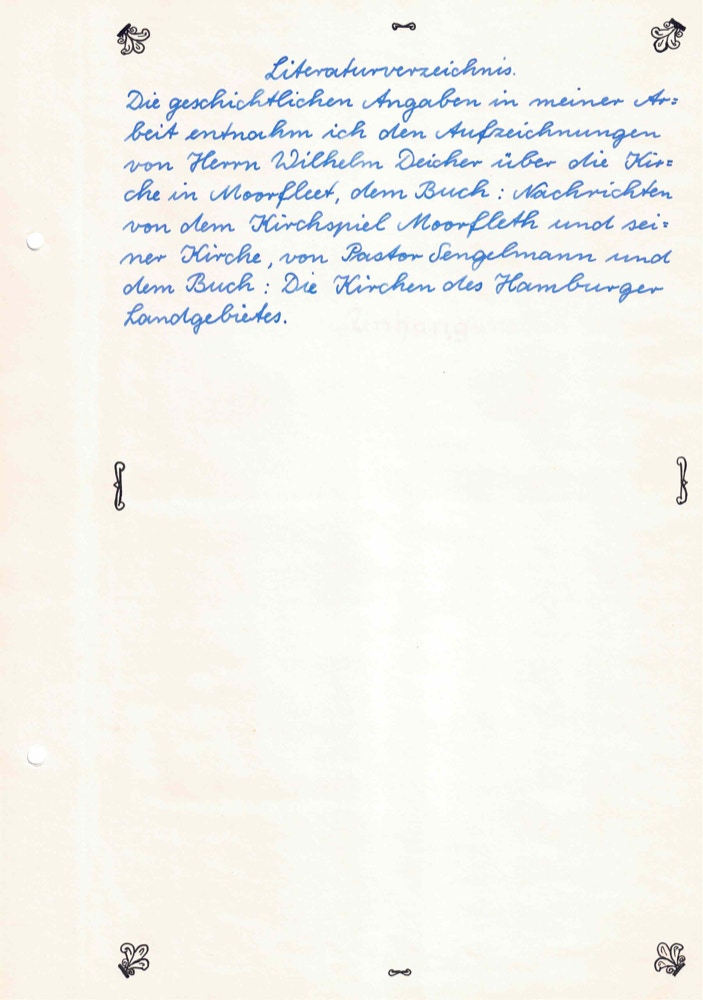 Literaturverzeichnis.
Die geschichtlichen Angaben in meiner Ar=
beit entnahm ich den Aufzeichnungen
von Herrn Wilhelm Deicher über die Kir=
che in Moorfleet, dem Buch: Nachrichten
von dem Kirchspiel Moorfleth und sei=
ner Kirche, von Pastor Sengelmann und
dem Buch: Die Kirchen des Hamburger
Landgebietes.